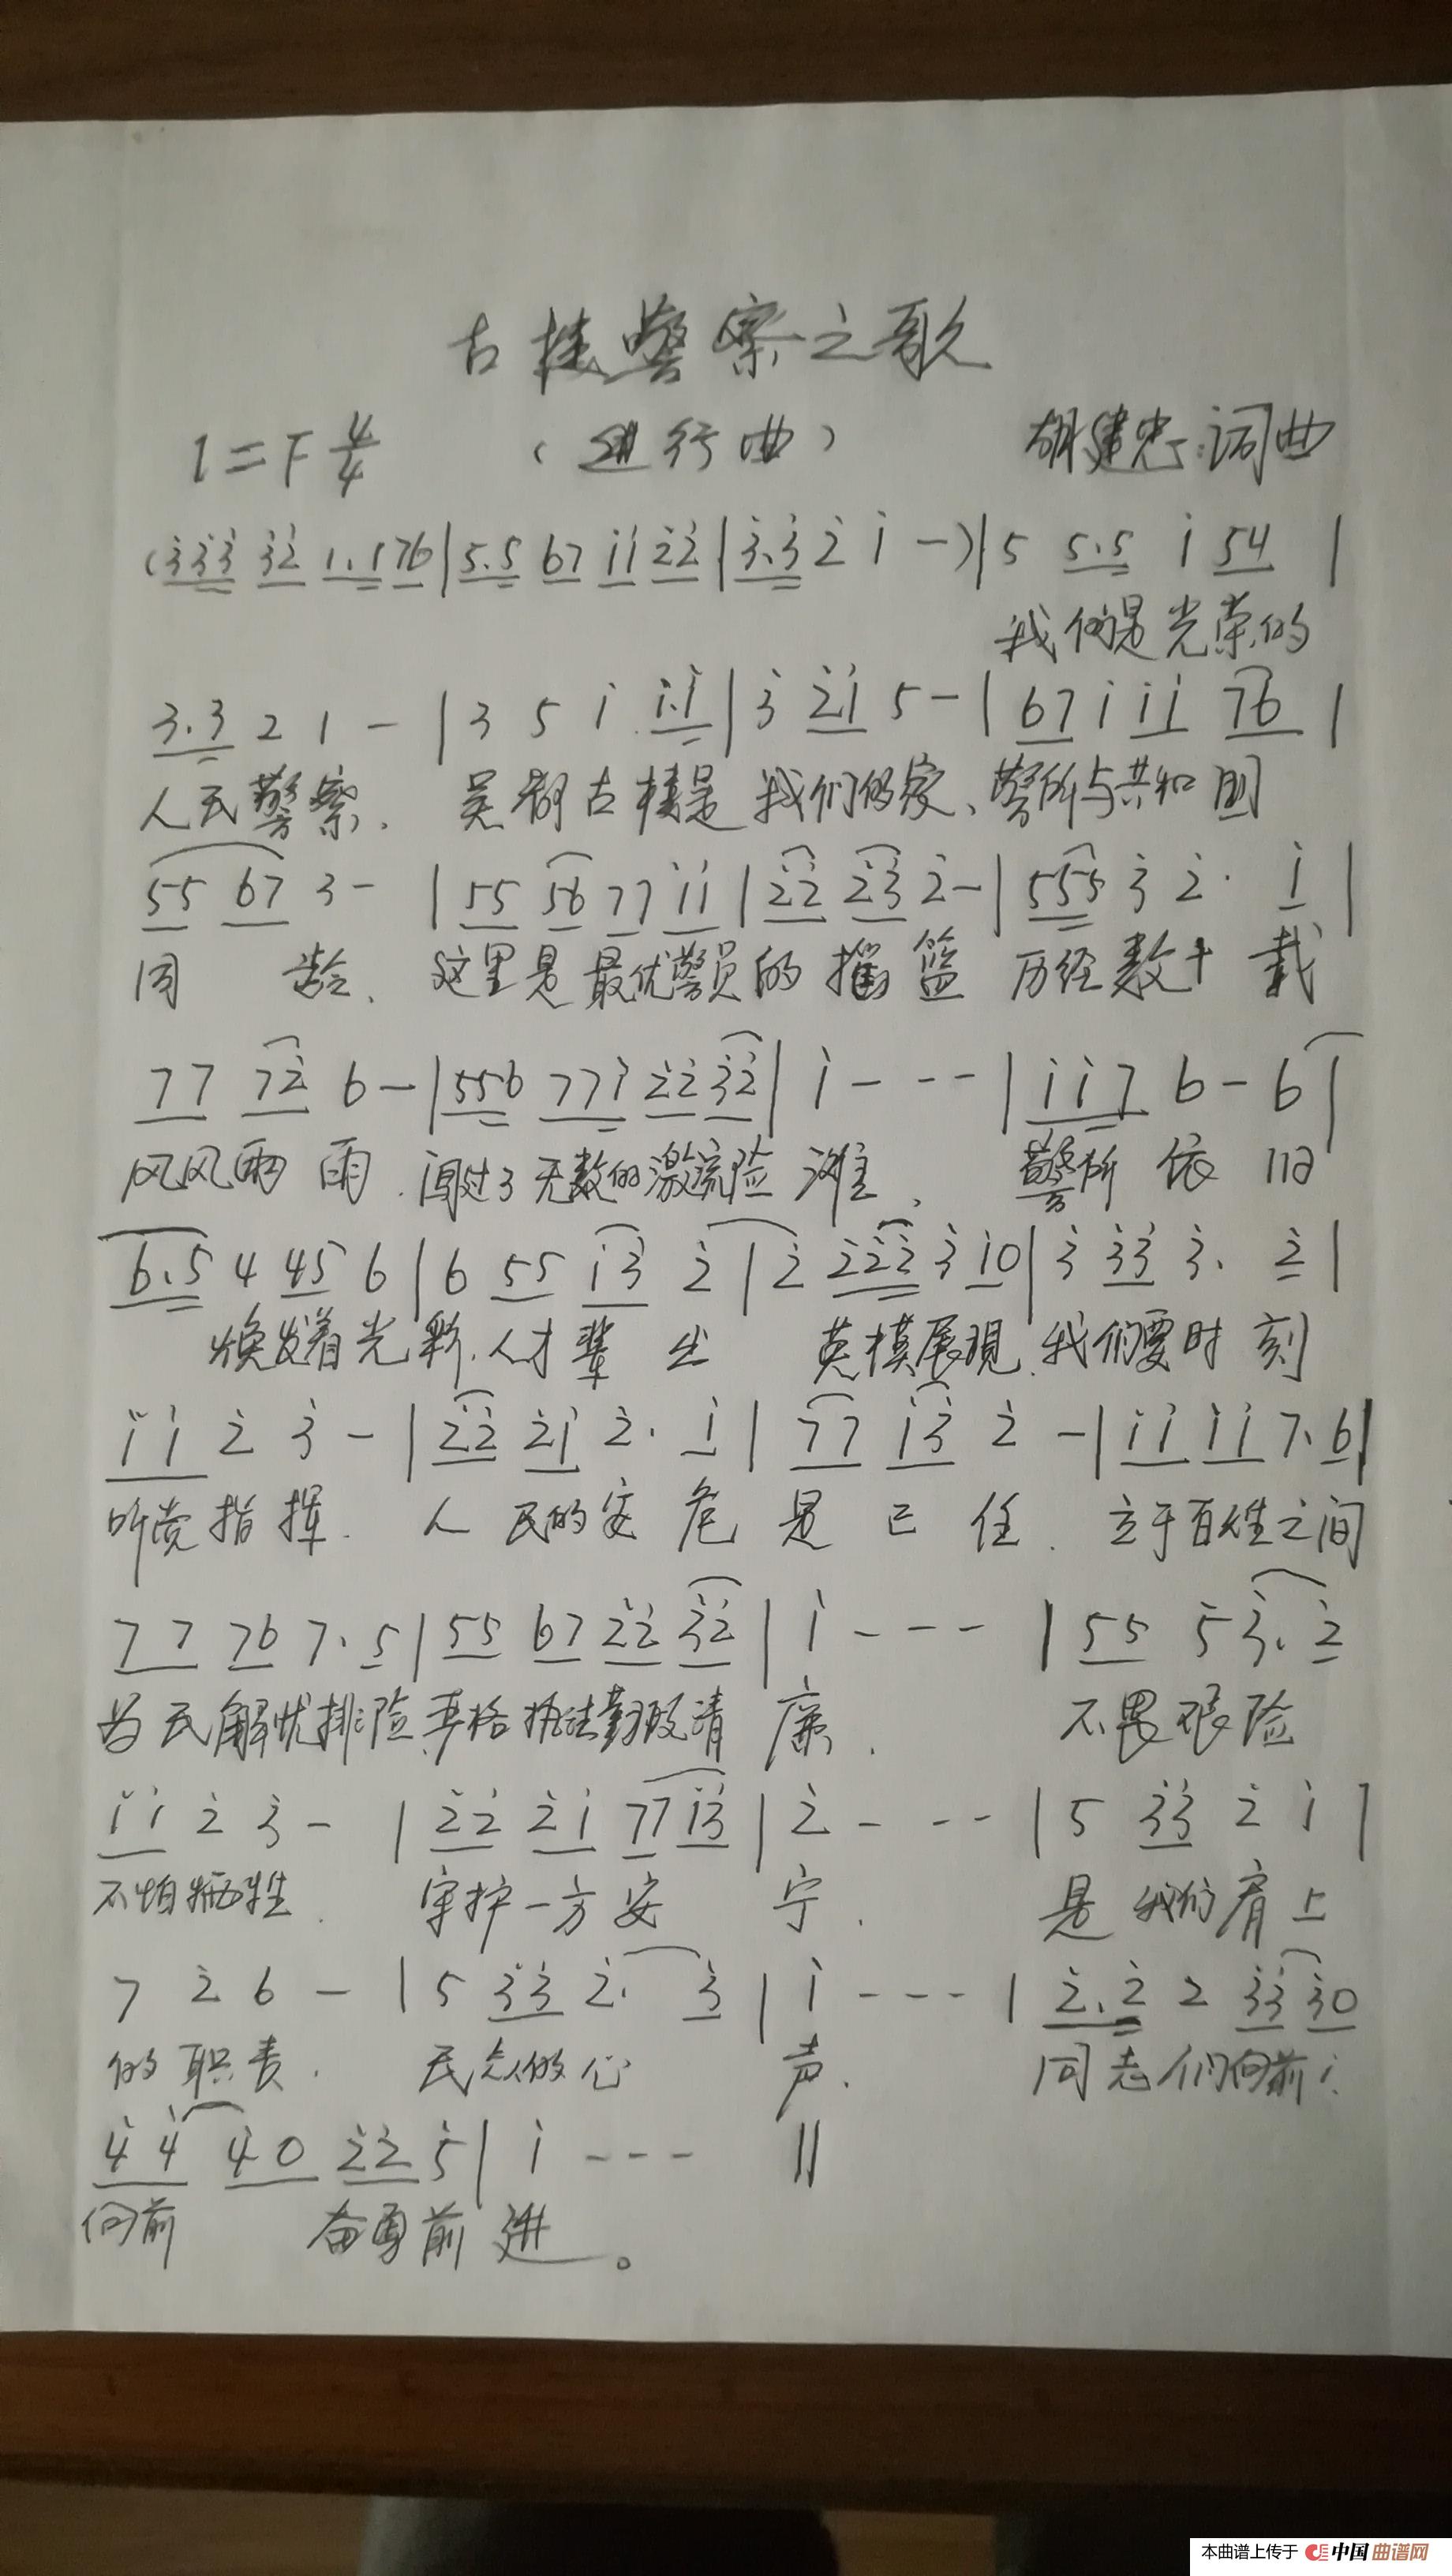 古楼警察之歌
1=F 4/4 （进行曲） 胡建忠:词曲
(3̇3̇3̇ 3̇2̇ 1.176|5.5 67 1̇1̇ 2̇2̇|3̇.3̇ 2̇ 1̇ -)|5 5.5 1̇ 54|
我们是光荣的
3.3 2 1 -|3 5 1̇ 1̇.1̇|3̇ 2̇1̇ 5-|67 1̇ 1̇1̇ 76|
人民警察、吴都古楼是我们的家、警所与共和国
55 67 3-|55 56 77 1̇1̇|2̇2̇ 2̇3̇ 2̇-|555 3̇ 2̇. 1̇|
同龄、这里是最优警员的摇篮 历经数十载
77 72̇ 6-|556 771̇ 2̇2̇ 3̇2̇|1̇---|1̇1̇7 6-6|
风风雨雨.闯过了无数的激流险滩、警所依旧
6.5 4 45 6|6 55 1̇3̇ 2̇|2̇ 2̇2̇2̇ 3̇ 1̇0|3̇ 3̇3̇ 3̇. 2̇|
焕发着光彩.人才辈出 英模展现.我们要时刻
1̇1̇ 2̇ 3̇ -|2̇2̇ 2̇1̇ 2̇. 1̇|77 1̇3̇ 2̇ -|1̇1̇ 1̇1̇ 7.6|
听党指挥.人民的安危是己任.立于百姓之间
77 76 7.5|55 67 2̇2̇ 3̇2̇|1̇---|55 5 3̇.2̇
为民解忧排险.严格执法勤政清廉.不畏艰险
1̇1̇ 2̇ 3̇ -|2̇2̇ 2̇1̇ 77 1̇3̇|2̇---|5 3̇3̇ 2̇ 1̇|
不怕牺牲.守护一方安宁.是我们肩上
7 2̇ 6 -|5 3̇3̇ 2̇. 3̇|1̇---|2̇.2̇ 2 3̇3̇ 3̇0
的职责.民众的心声.同志们向前!
4̇4̇ 4̇0 2̇2̇ 5̇|1̇---‖
向前 奋勇前进。
本曲谱上传于 中国曲谱网